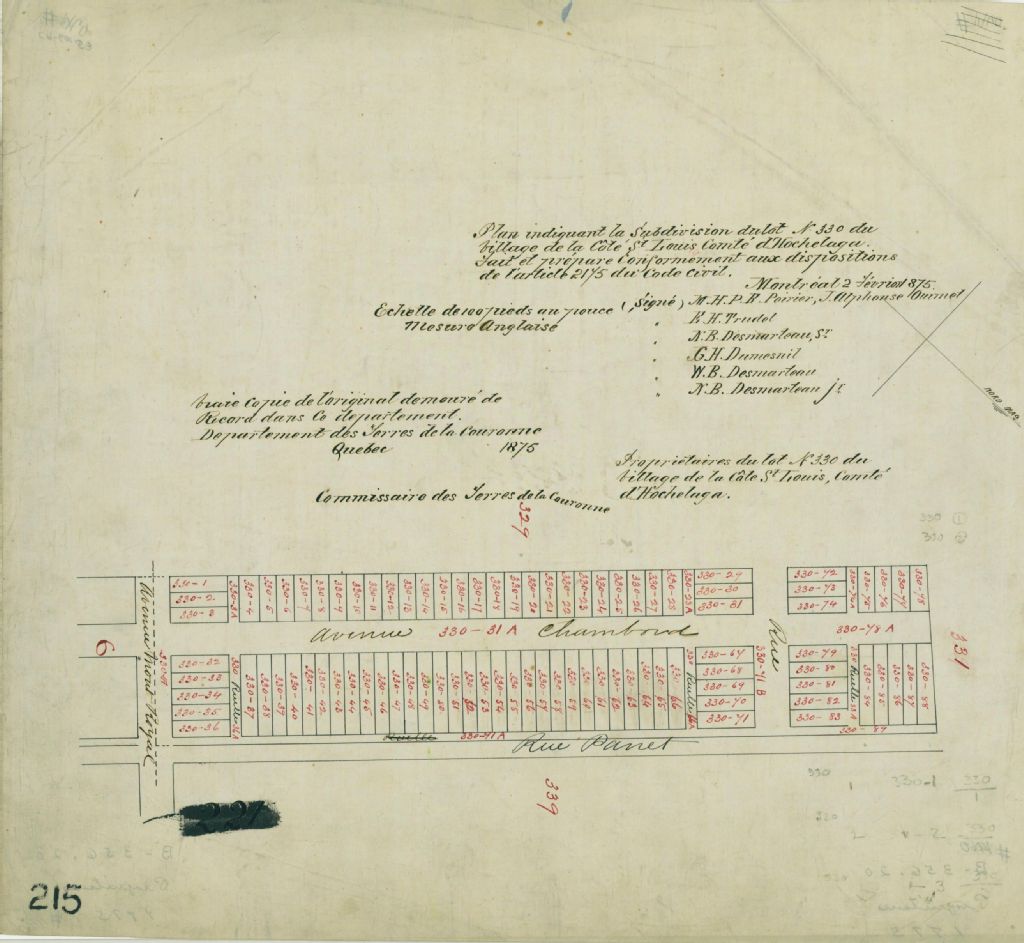 Plan indiquant la Subdivision du lot N 330 du
Village de la Côté St Louis Comté d'Hochelaga.
Fait et préparé Conformément aux dispositions
de l'article 2175 du Code Civil.
Montréal 2 Février 1875.
Echelle de 100 pieds au pouce
Mesure Anglaise
(Signé) M.H.P.R. Poirier, J. Alphonse
E.H. Trudel
N.B. Desmarteau, Sr
G.H. Dumesnil
W.B. Desmarteau
N.B. Desmarteau jr.
Vraie Copie de l'original demeuré de
Record dans Ce département.
Departement des Terres de la Couronne
Quebec 1875
Propriétaires du lot N 330 du
Village de la Côte St Louis, Comté
d'Hochelaga.
Commissaire des Terres de la Couronne
329
330-1
330-2
330-3
330-4
330-5
330-6
330-7
330-8
330-9
330-10
330-11
330-12
330-13
330-14
330-15
330-16
330-17
330-18
330-19
330-20
330-21
330-22
330-23
330-24
330-25
330-26
330-27
330-28
330-28A
330-29
330-30
330-31
330-72
330-73
330-74
330-75
330-76
330-77
330-78
Avenue 330-31A Chambord
Rue
330-78A
331
6
Avenue Mont-Royal
330-32
330-33
330-34
330-35
330-36
Ruelle
330-37
330-38
330-39
330-40
330-41
330-42
330-43
330-44
330-45
330-46
330-47
330-48
330-49
330-50
330-51
330-52
330-53
330-54
330-55
330-56
330-57
330-58
330-59
330-60
330-61
330-62
330-63
330-64
330-65
330-66
Ruelle
330-67
330-68
330-69
330-70
330-71
330-71B
330-79
330-80
330-81
330-82
330-83
Ruelle
330-84
330-85
330-86
330-87
330-88
330-89
Ruelle 330-71A
Rue Panet
339
215